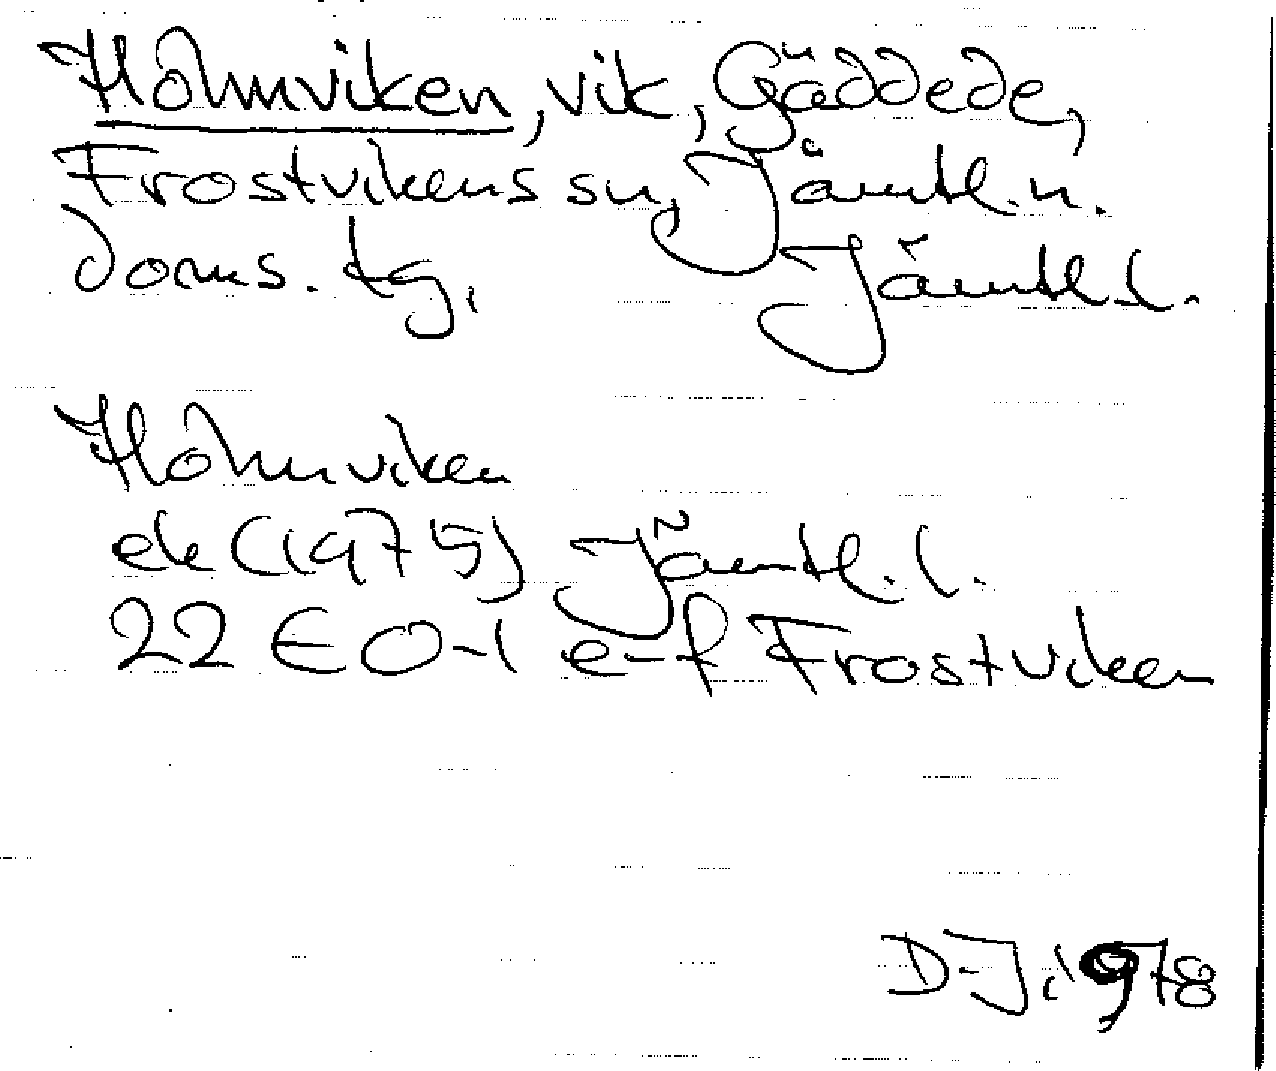 Holmviken, vik, Gäddede,
Frostvikens sn, Jämtl. n.
doms. tg, Jämtl. l.
Holmviken
ek (1975) Jämtl. l.
22 E 0-1 e-f Frostviken
D-J. 1978